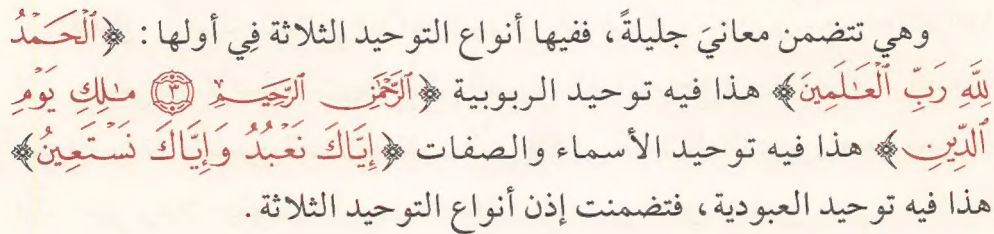 وهي تتضمن معانيَ جليلةً، ففيها أنواع التوحيد الثلاثة فِي أولها: ﴿ٱلۡحَمۡدُ
لِلَّهِ رَبِّ ٱلۡعَٰلَمِينَ﴾ هذا فيه توحيد الربوبية ﴿ٱلرَّحۡمَٰنِ ٱلرَّحِيمِ ٣ مَٰلِكِ يَوۡمِ
ٱلدِّينِ﴾ هذا فيه توحيد الأسماء والصفات ﴿إِيَّاكَ نَعۡبُدُ وَإِيَّاكَ نَسۡتَعِينُ﴾
هذا فيه توحيد العبودية، فتضمنت إذن أنواع التوحيد الثلاثة.